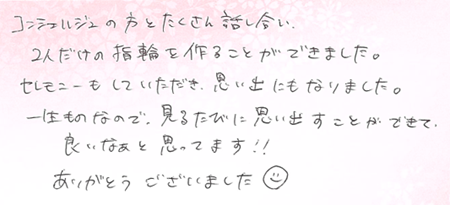 コンシェルジュの方とたくさん話し合い、
2人だけの指輪を作ることができました。
セレモニーもしていただき、思い出にもなりました。
一生ものなので、見るたびに思い出すことができて、
良いなぁと思ってます!!
ありがとうございました☺